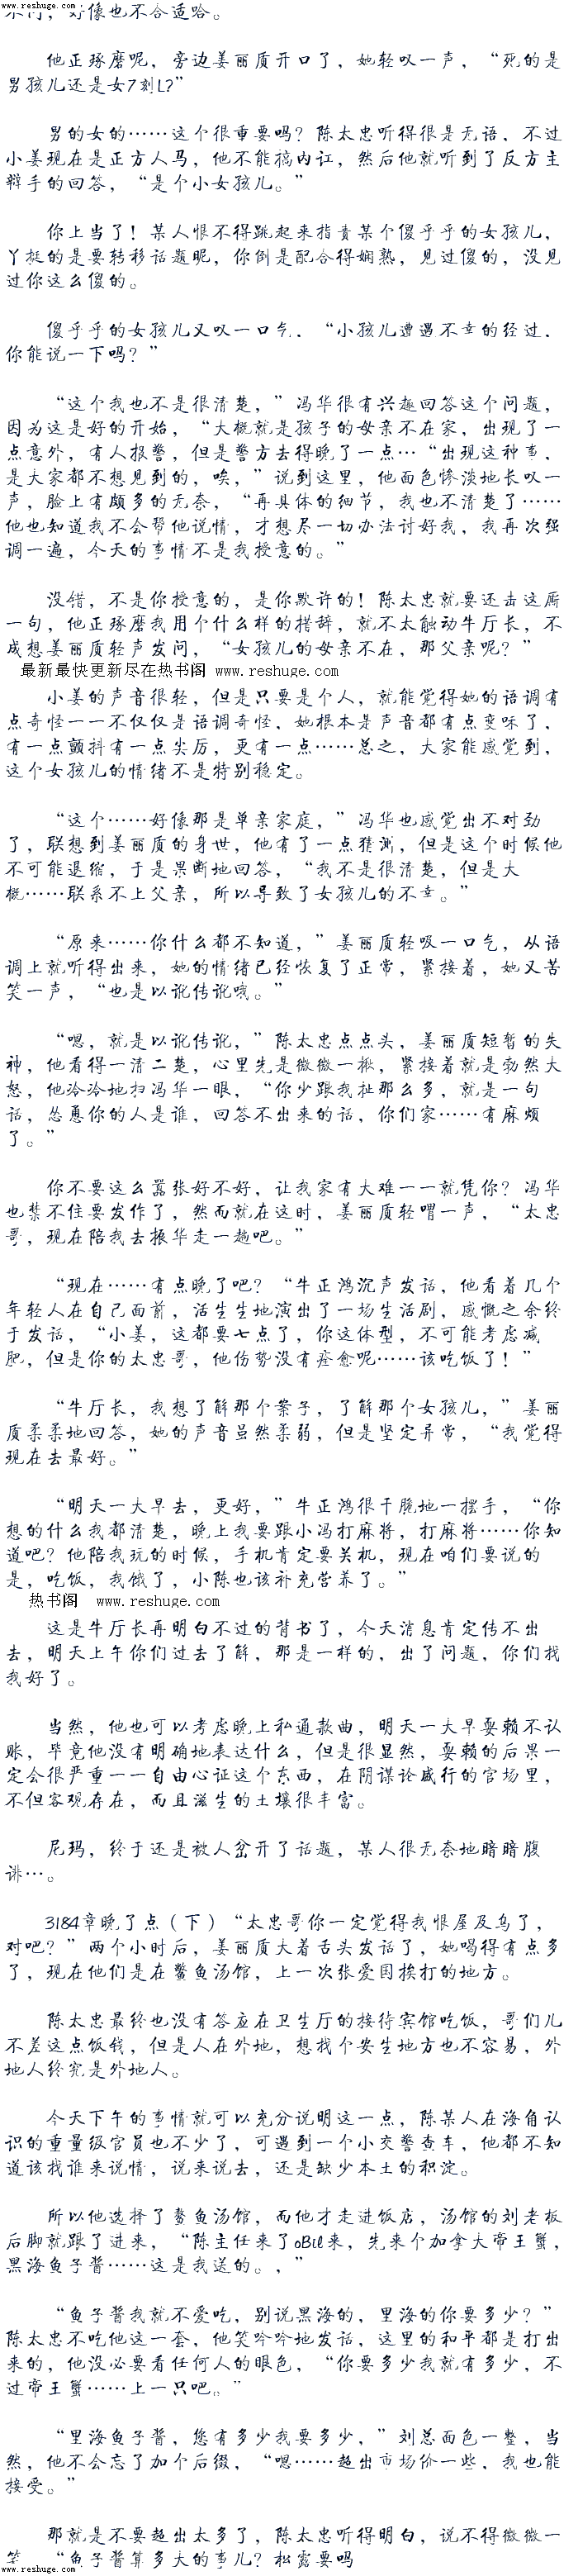 www.reshuge.com
不行，好像也不合适哈。
他正琢磨呢，旁边姜丽质开口了，她轻叹一声，“死的是
男孩儿还是女7刻L?”
男的女的……这个很重要吗？陈太忠听得很是无语，不过
小姜现在是正方人马，他不能搞内讧，然后他就听到了反方主
辩手的回答，“是个小女孩儿。”
你上当了！某人恨不得跳起来指责某个傻乎乎的女孩儿，
丫挺的是要转移话题昵，你倒是配合得娴熟，见过傻的，没见
过你这么傻的。
傻乎乎的女孩儿又叹一口气，“小孩儿遭遇不幸的经过，
你能说一下吗？”
“这个我也不是很清楚，”冯华很有兴趣回答这个问题，
因为这是好的开始，“大概就是孩子的母亲不在家，出现了一
点意外，有人报警，但是警方去得晚了一点…“出现这种事，
是大家都不想见到的，唉，”说到这里，他面色惨淡地长叹一
声，脸上有颇多的无奈，“再具体的细节，我也不清楚了……
他也知道我不会帮他说情，才想尽一切办法讨好我，我再次强
调一遍，今天的事情不是我授意的。”
没错，不是你授意的，是你默许的！陈太忠就要还击这厮
一句，他正琢磨我用个什么样的措辞，就不太触动牛厅长，不
成想姜丽质轻声发问，“女孩儿的母亲不在，那父亲呢？”
最新最快更新尽在热书阁 www.reshuge.com
小姜的声音很轻，但是只要是个人，就能觉得她的语调有
点奇怪一一不仅仅是语调奇怪，她根本是声音都有点变味了，
有一点颤抖有一点尖厉，更有一点……总之，大家能感觉到，
这个女孩儿的情绪不是特别稳定。
“这个……好像那是单亲家庭，”冯华也感觉出不对劲
了，联想到姜丽质的身世，他有了一点猜测，但是这个时候他
不可能退缩，于是果断地回答，“我不是很清楚，但是大
概……联系不上父亲，所以导致了女孩儿的不幸。”
“原来……你什么都不知道，”姜丽质轻吸一口气，从语
调上就听得出来，她的情绪已经恢复了正常，紧接着，她又苦
笑一声，“也是以讹传讹哦。”
“嗯，就是以讹传讹，”陈太忠点点头，姜丽质短暂的失
神，他看得一清二楚，心里先是微微一揪，紧接着就是勃然大
怒，他冷冷地扫冯华一眼，“你少跟我扯那么多，就是一句
话，怂恿你的人是谁，回答不出来的话，你们家……有麻烦
了。”
你不要这么嚣张好不好，让我家有大难一一就凭你？冯华
也禁不住要发作了，然而就在这时，姜丽质轻喟一声，“太忠
哥，现在陪我去振华走一趟吧。”
“现在……有点晚了吧？“牛正鸿沉声发话，他看着几个
年轻人在自己面前，活生生地演出了一场生活剧，感慨之余终
于发话，“小姜，这都要七点了，你这体型，不可能考虑减
肥，但是你的太忠哥，他伤势没有痊愈呢……该吃饭了！”
“牛厅长，我想了解那个案子，了解那个女孩儿，”姜丽
质柔柔地回答，她的声音虽然柔弱，但是坚定异常，“我觉得
现在去最好。”
“明天一大早去，更好，”牛正鸿很干脆地一摆手，“你
想的什么我都清楚，晚上我要跟小冯打麻将，打麻将……你知
道吧？他陪我玩的时候，手机肯定要关机，现在咱们要说的
是，吃饭，我饿了，小陈也该补充营养了。”
热书阁 www.reshuge.com
这是牛厅长再明白不过的背书了，今天消息肯定传不出
去，明天上午你们过去了解，那是一样的，出了问题，你们找
我好了。
当然，他也可以考虑晚上私通款曲，明天一大早耍赖不认
账，毕竟他没有明确地表达什么，但是很显然，耍赖的后果一
定会很严重一一自由心证这个东西，在阴谋论盛行的官场里，
不但客观存在，而且滋生的土壤很丰富。
尼玛，终于还是被人岔开了话题，某人很无奈地暗暗腹
诽…。
3184章晚了点（下）“太忠哥你一定觉得我恨屋及乌了，
对吧？”两个小时后，姜丽质大着舌头发话了，她喝得有点多
了，现在他们是在鳖鱼汤馆，上一次张爱国挨打的地方。
陈太忠最终也没有答应在卫生厅的接待宾馆吃饭，哥们儿
不差这点饭钱，但是人在外地，想找个安生地方也不容易，外
地人终究是外地人。
今天下午的事情就可以充分说明这一点，陈某人在海角认
识的重量级官员也不少了，可遇到一个小交警查车，他都不知
道该找谁来说情，说来说去，还是缺少本土的积淀。
所以他选择了鳌鱼汤馆，而他才走进饭店，汤馆的刘老板
后脚就跟了进来，“陈主任来了oBil来，先来个加拿大帝王蟹，
黑海鱼子酱……这是我送的。，”
“鱼子酱我就不爱吃，别说黑海的，里海的你要多少？”
陈太忠不吃他这一套，他笑吟吟地发话，这里的和平都是打出
来的，他没必要看任何人的眼色，“你要多少我就有多少，不
过帝王蟹……上一只吧。”
“里海鱼子酱，您有多少我要多少，”刘总面色一整，当
然，他不会忘了加个后缀，“嗯……超出市场价一些，我也能
接受。”
那就是不要超出太多了，陈太忠听得明白，说不得微微一
笑，“鱼子酱算多大的事儿？松露要吗
www.reshuge.com